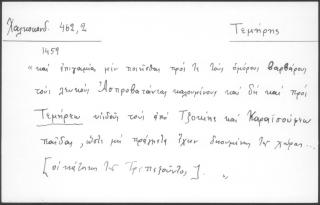 Χαλκοκονδ. 462,2
Τεμήρης
1459
"καὶ ἐπιγαμίας μὲν ποιεῖσθαι πρός τε τοὺς ὁμόρους βαρβάρους
τοὺς λευκοὺς Ἀσπροβατάνας καλουμένους καὶ δὴ καὶ πρὸς
Τεμήρεω υἱδοῦς τοὺς ἀπὸ Τζοκίης καὶ Καραϊσούφεω
παῖδας, ὥστε μὴ πράγματα ἔχειν δῃουμένης τῆς χώρας...
[οἱ κάτοικοι τῆς Τραπεζοῦντος]. "